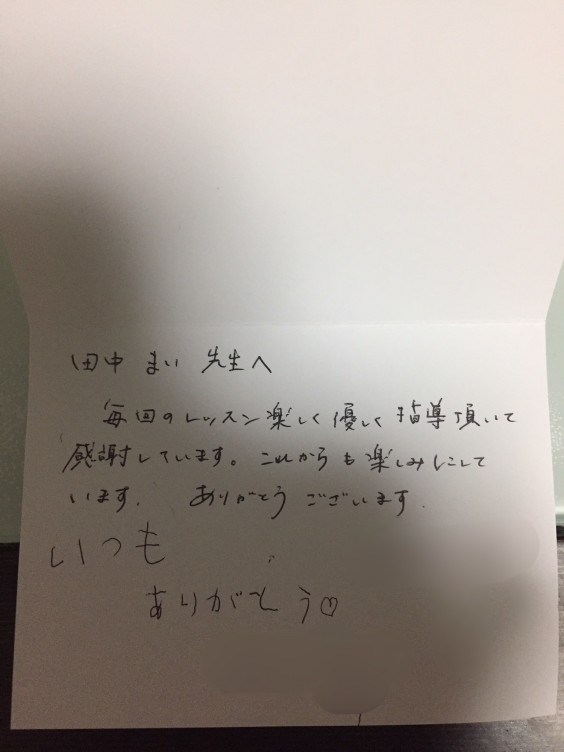 田中 まい 先生へ
毎回のレッスン楽しく優しく指導頂いて
感謝しています。これからも楽しみにして
います. ありがとうございます.
いつも
ありがとう♡